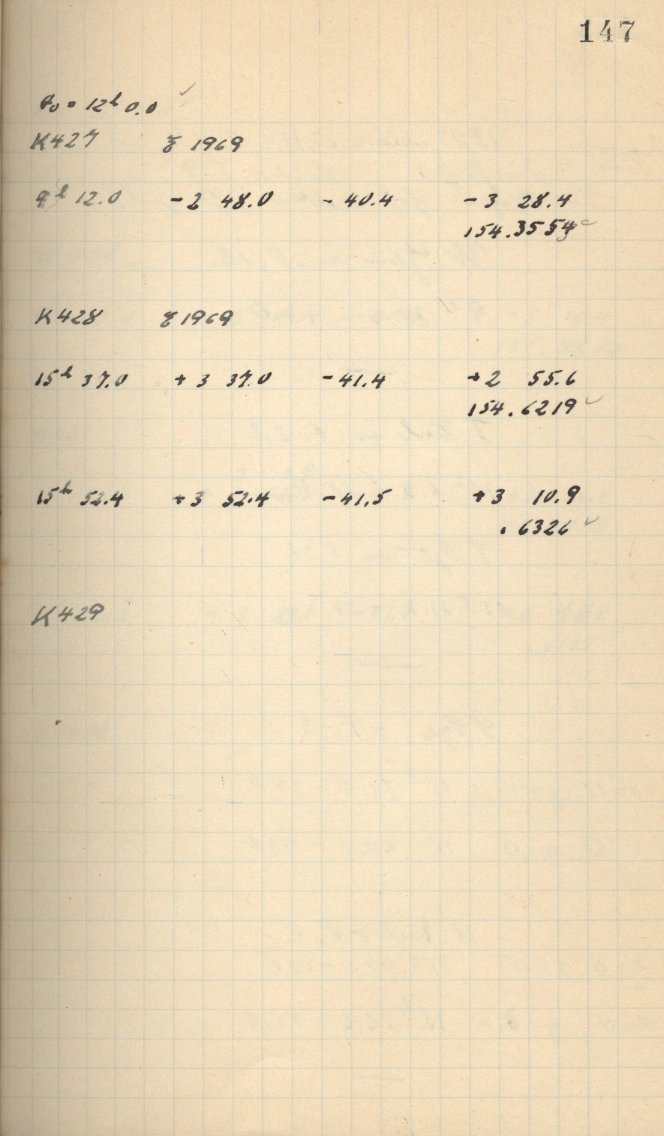 147
θ₀ = 12ʰ 0.0 ✓
K427 ξ 1969
9ʰ 12.0 - 2 48.0 - 40.4 - 3 28.4
154.3554
K428 ξ 1969
15ʰ 37.0 + 3 37.0 - 41.4 + 2 55.6
154.6219 ✓
15ʰ 52.4 + 3 52.4 - 41.5 + 3 10.9
.6326 ✓
K429